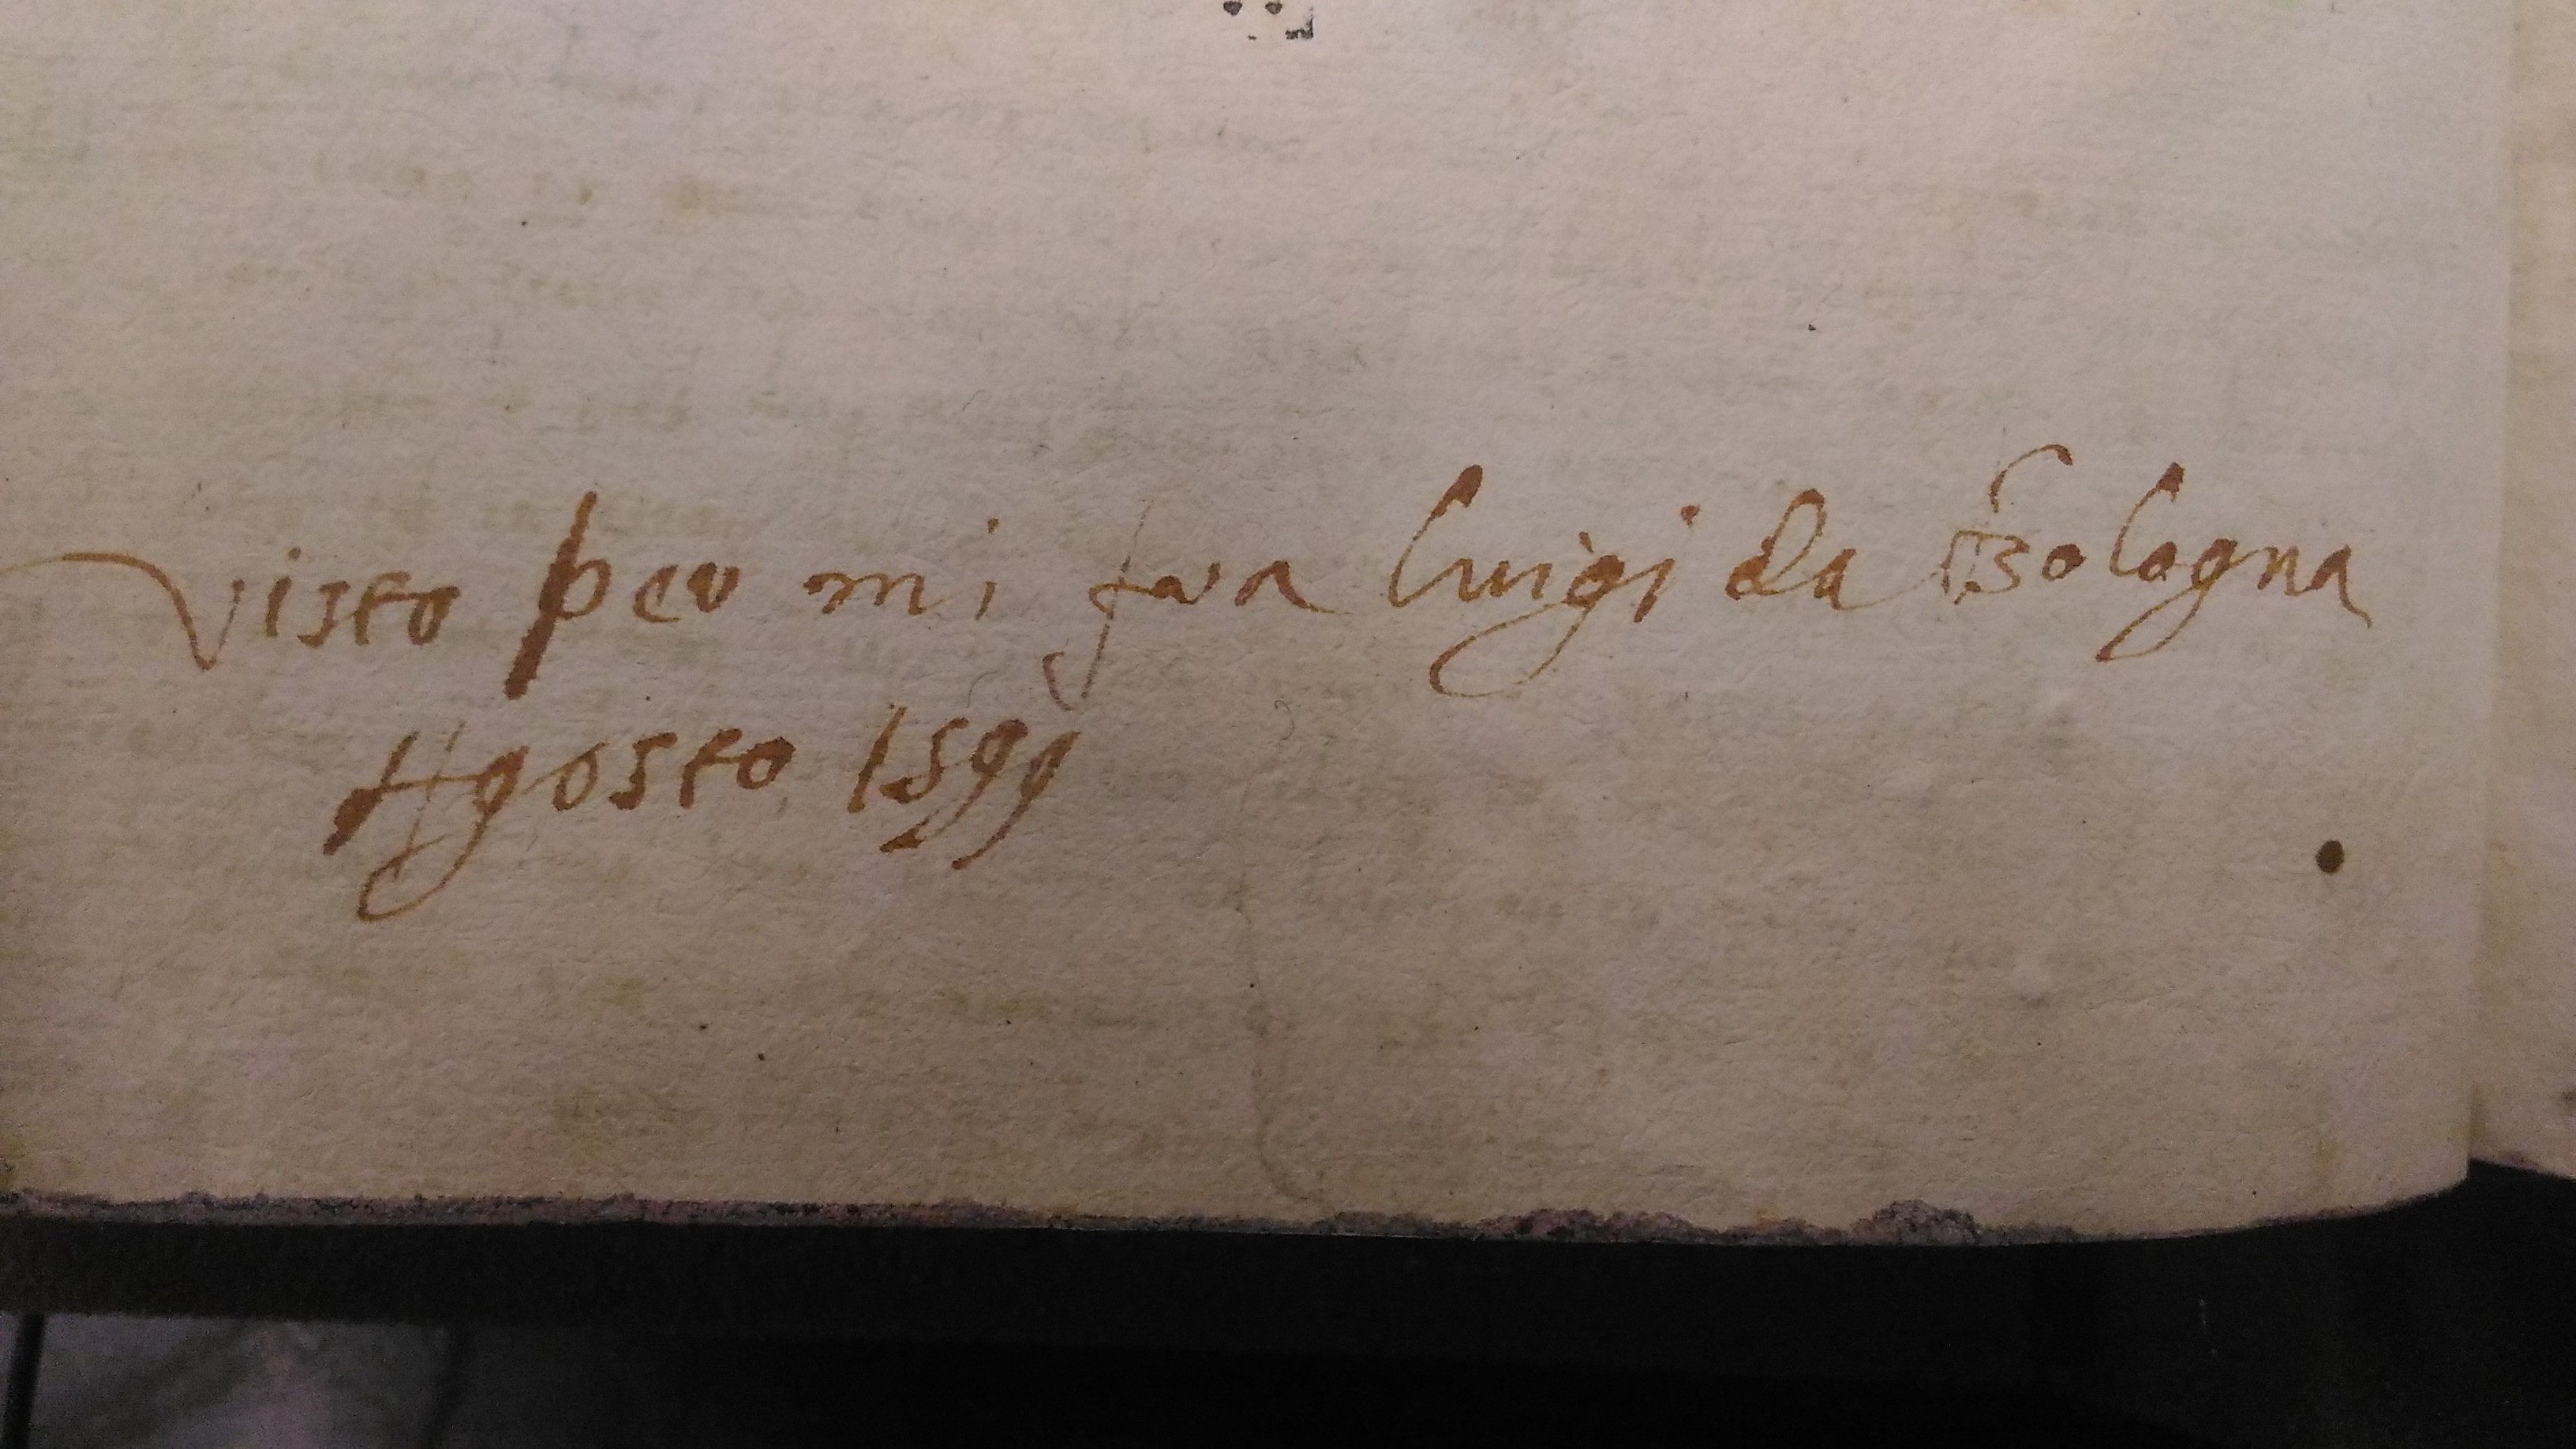 Visto per mi fra Luigi da Bologna
Agosto 1599